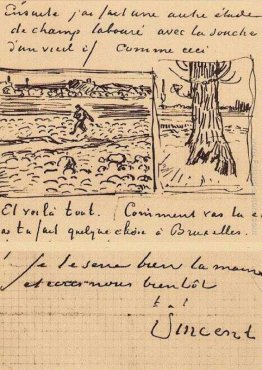 Ensuite j'ai fait une autre étude
de champs labouré avec la souche
d'un vieil if Comme ceci
Et voilà tout. Comment vas tu e
as tu fait quelque chose à Bruxelles.
Je te serre bien la main
et écris nous bientôt
t. à
Vincent